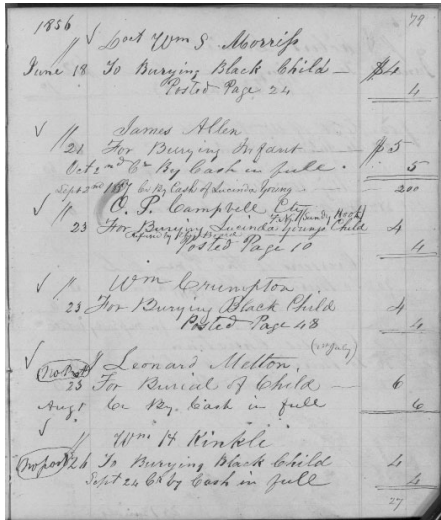 1856 79
√ " Doct Wm S. Morriss
June 18 To Burying Black Child — $4
Posted Page 24 4
√ " James Allen
21 For Burying Infant — $5
Oct 2nd Cr By Cash in full . 5
Sept 2nd 1857 Cr By Cash of Lucinda Young . — 200
√ " O. P. Campbell Cty
(Sandy Hook)
23 For Burying Lucinda Youngs Child 4
Posted Page 10 4
√ " Wm Crumpton
23 For Burying Black Child 4
Posted Page 48 4
√ " Leonard Melton,
23 For Burial of Child — 6
Aug Cr By. Cash in full 6
√ " Wm H Kinkle
No post 24 To Burying Black Child 4
Sept 24 Cr by Cash in full 4
27